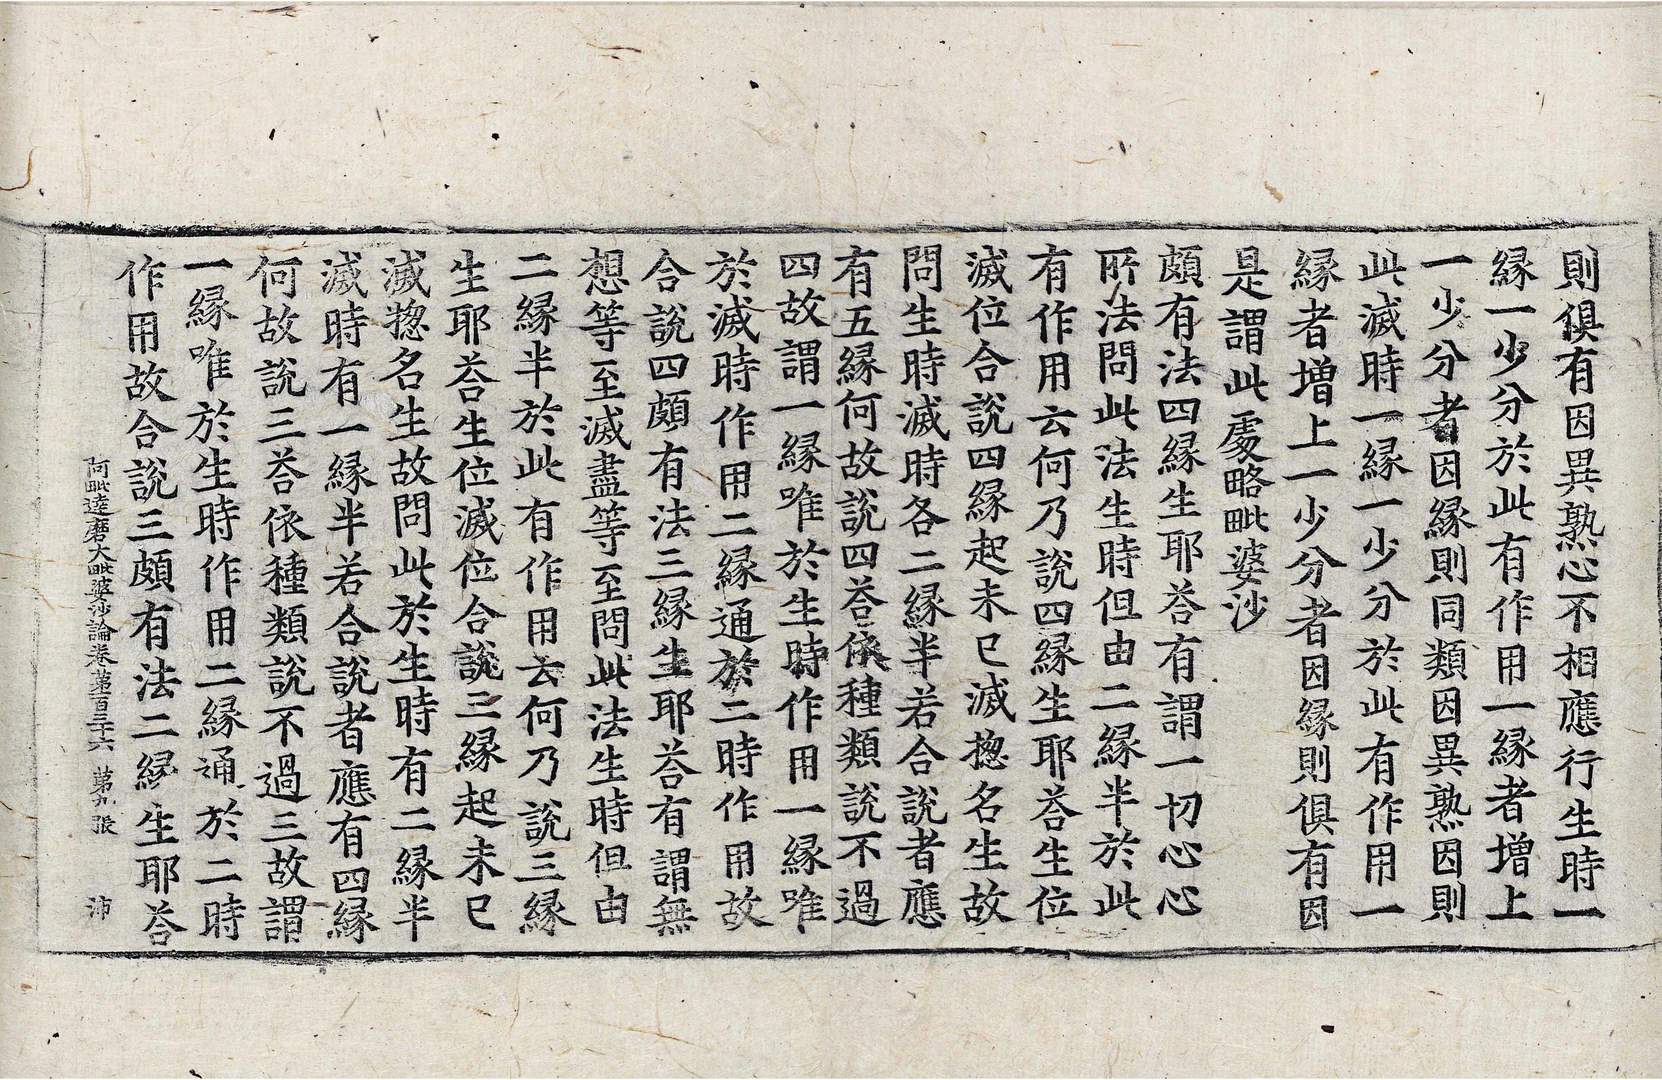 則俱有因異熟心不相應行生時一
緣一少分於此有作用一緣者增上
一少分者因緣則同類因異熟因則
此滅時一緣一少分於此有作用一
緣者增上一少分者因緣則俱有因
是謂此處略毗婆沙
頗有法四緣生耶荅有謂一切心心
所法問此法生時但由二緣半於此
有作用云何乃說四緣生耶荅生位
滅位合說四緣起未已滅揔名生故
問生時滅時各二緣半若合說者應
有五緣何故說四荅依種類說不過
四故謂一緣唯於生時作用一緣唯
於滅時作用二緣通於二時作用故
合說四頗有法三緣生耶荅有謂無
想等至滅盡等至問此法生時但由
二緣半於此有作用云何乃說三緣
生耶荅生位滅位合說三緣起未已
滅揔名生故問此於生時有二緣半
滅時有一緣半若合說者應有四緣
何故說三荅依種類說不過三故謂
一緣唯於生時作用二緣通於二時
作用故合說三頗有法二緣生耶荅
阿毗達磨大毗婆沙論卷苐百三十六 苐九張 沛